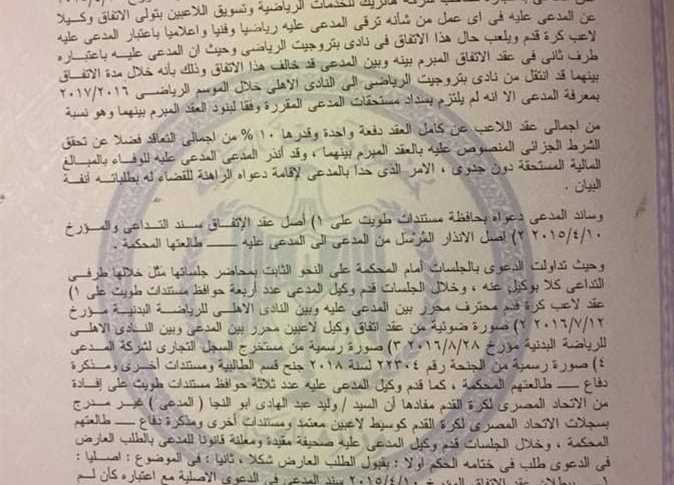 عن المدعى عليه فى اى عمل من شأنه ترقى المدعى عليه رياضيا وفنيا واعلاميا باعتبار المدعى عليه
لاعب كرة قدم ويلعب حال هذا الاتفاق فى نادى بتروجيت الرياضي وحيث ان المدعى عليه باعتباره
طرف ثانى فى عقد الاتفاق المبرم بينه وبين المدعى قد خالف هذا الاتفاق وذلك بأنه خلال مدة الاتفاق
بينهما قد انتقل من نادى بتروجيت الرياضى الى النادى الاهلي خلال الموسم الرياضى ٢٠١٧/٢٠١٦
بمعرفة المدعى الا انه لم يلتزم بسداد مستحقات المدعى المقررة وفقا لبنود العقد المبرم بينهما وهو نسبة
من اجمالي عقد اللاعب عن كامل العقد دفعة واحدة وقدرها ١٠ % من اجمالى التعاقد فضلا عن تحقق
الشرط الجزائى المنصوص عليه بالعقد المبرم بينهما ، وقد أنذر المدعى المدعى عليه للوفاء بالمبالغ
المالية المستحقة دون جدوى ، الامر الذى حدا بالمدعى لإقامة دعواه الراهنة للقضاء له بطلباته آنفة
البيان .
وساند المدعى دعواه بحافظة مستندات طويت على ١) أصل عقد الإتفاق سند التداعى والمؤرخ
٢٠١٥/٤/١٠ ٢) اصل الانذار المُرسَل من المدعى الى المدعى عليه ــــــ طالعتها المحكمة .
وحيث تداولت الدعوى بالجلسات أمام المحكمة على النحو الثابت بمحاضر جلساتها مثل خلالها طرفى
التداعى كلا بوكيل عنه ، وخلال الجلسات قدم وكيل المدعى عدد أربعة حوافظ مستندات طويت على ١)
عقد لاعب كرة قدم محترف محرر بين المدعى عليه وبين النادى الاهلى للرياضة البدنية مؤرخ
٢٠١٦/٧/١٢ ٢) صورة ضوئية من عقد اتفاق وكيل لاعبين محرر بين المدعى وبين النادى الاهلى
للرياضة البدنية مؤرخ ٢٠١٦/٨/٢٨ ٣) صورة رسمية من مستخرج السجل التجارى لشركة المدعى
٤) صورة رسمية من الجنحة رقم ٢٢٣٠٤ لسنة ٢٠١٨ جنح قسم الطالبية ومستندات أخرى ومذكرة
دفاع ــــ طالعتهم المحكمة ، كما قدم وكيل المدعى عليه عدد ثلاثة حوافظ مستندات طويت على إفادة
من الاتحاد المصرى لكرة القدم مفادها أن السيد / وليد عبد الهادى ابو النجا ( المدعى ) غير مدرج
بسجلات الاتحاد المصرى لكرة القدم كوسيط لاعبين معتمد ومستندات أخرى ومذكرة دفاع ــــ طالعتهم
المحكمة ، وخلال الجلسات قدم وكيل المدعى عليه صحيفة مقيدة ومعلنة قانونا للمدعى بالطلب العارض
فى الدعوى طلب فى ختامه الحكم اولا : بقبول الطلب العارض شكلا ، ثانيا : فى الموضوع : اصليا :
سند المدعى فى الدعوى الاصلية مع اعتباره كأن لم